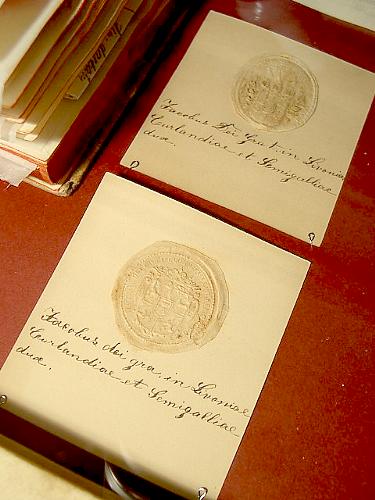 Jacobus Dei Gra: in Livoniae
Curlandiae et Semigalliae
dux.
Jacobus dei gra. in Livoniae
Curlandiae et Semigalliae
dux.